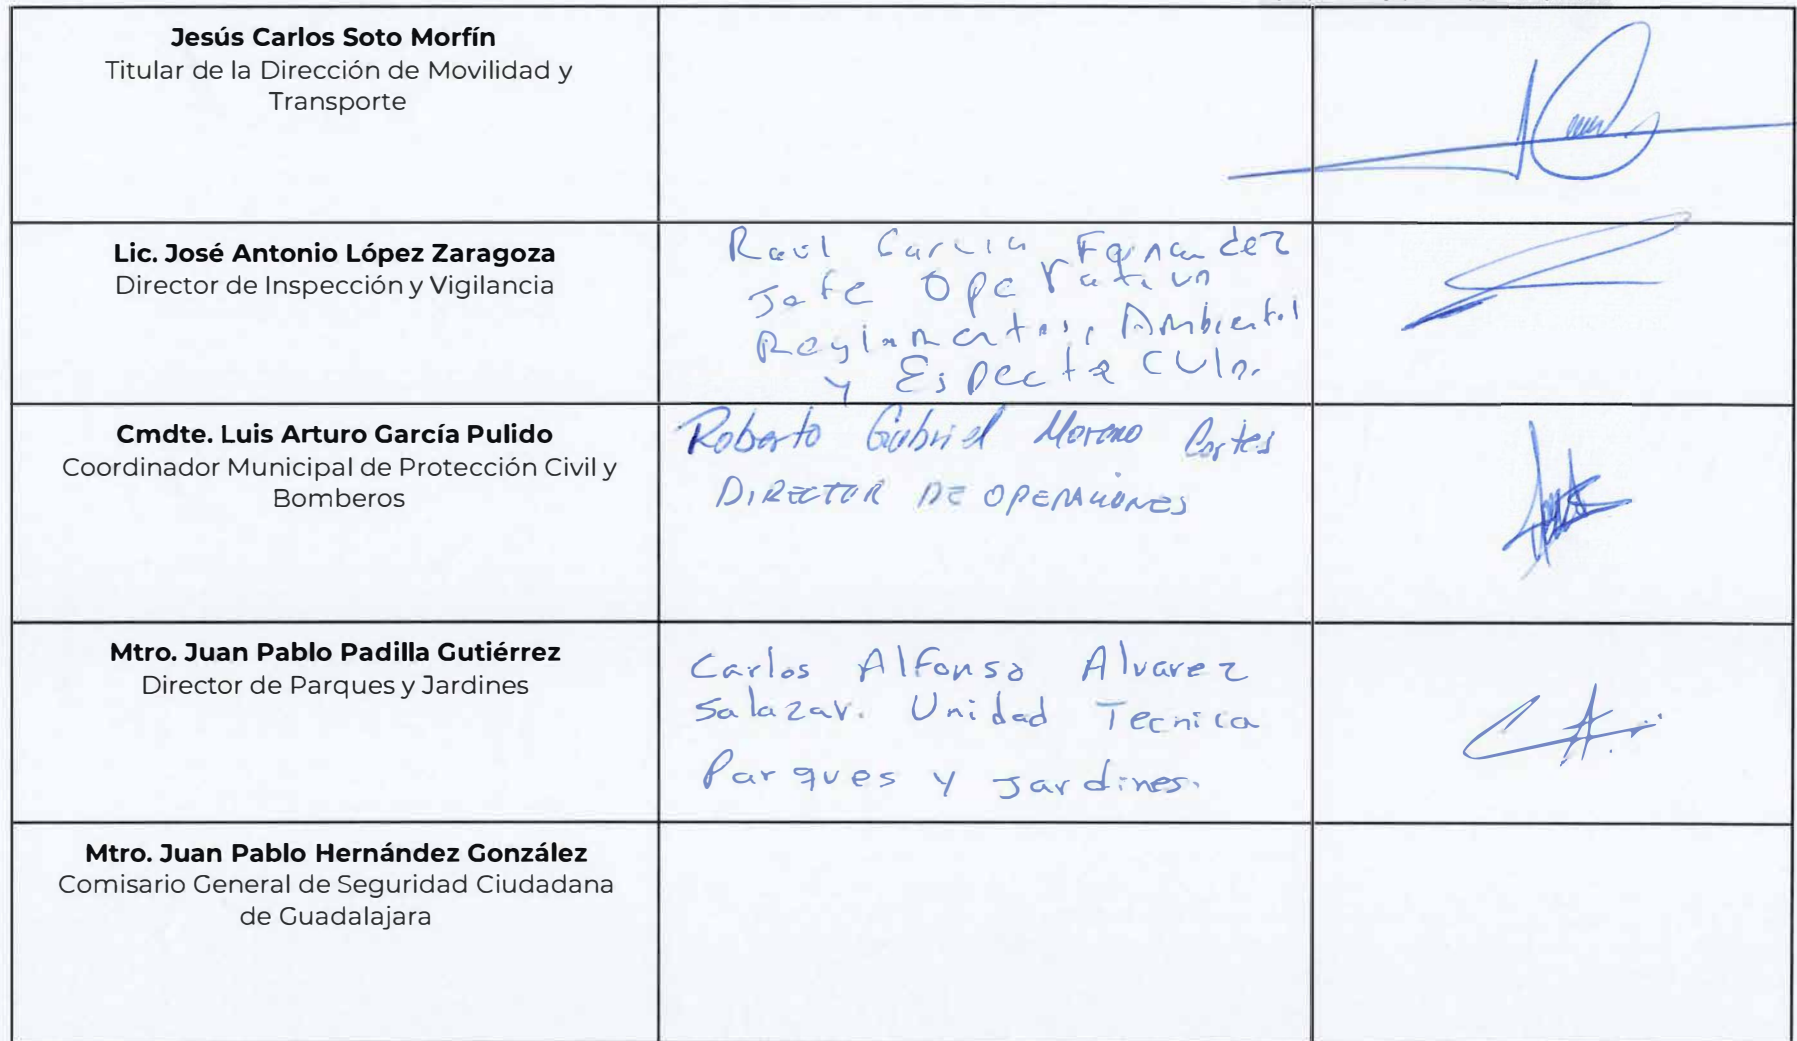 Jesús Carlos Soto Morfín
Titular de la Dirección de Movilidad y
Transporte
Lic. José Antonio López Zaragoza
Director de Inspección y Vigilancia
Raul Garcia Fernandez
Jefe Operativo
Reglamentos, Ambiental
y Espectaculo.
Cmdte. Luis Arturo García Pulido
Coordinador Municipal de Protección Civil y
Bomberos
Roberto Gabriel Moreno Cortes
DIRECTOR DE OPERACIONES
Mtro. Juan Pablo Padilla Gutiérrez
Director de Parques y Jardines
Carlos Alfonso Alvarez
Salazar. Unidad Tecnica
Parques y Jardines.
Mtro. Juan Pablo Hernández González
Comisario General de Seguridad Ciudadana
de Guadalajara